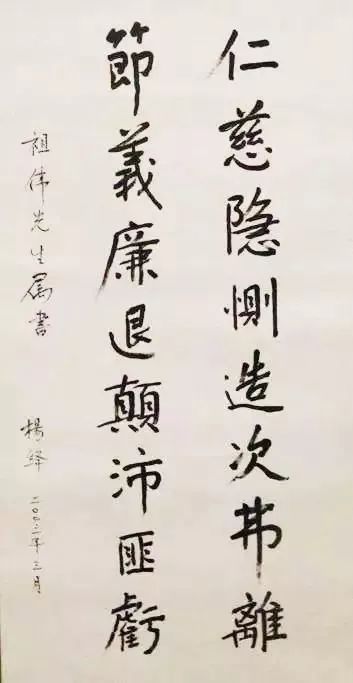 仁慈隐惻造次弗離
節義廉退顛沛匪虧
祖伟先生属書
楊绛 二〇〇二年三月